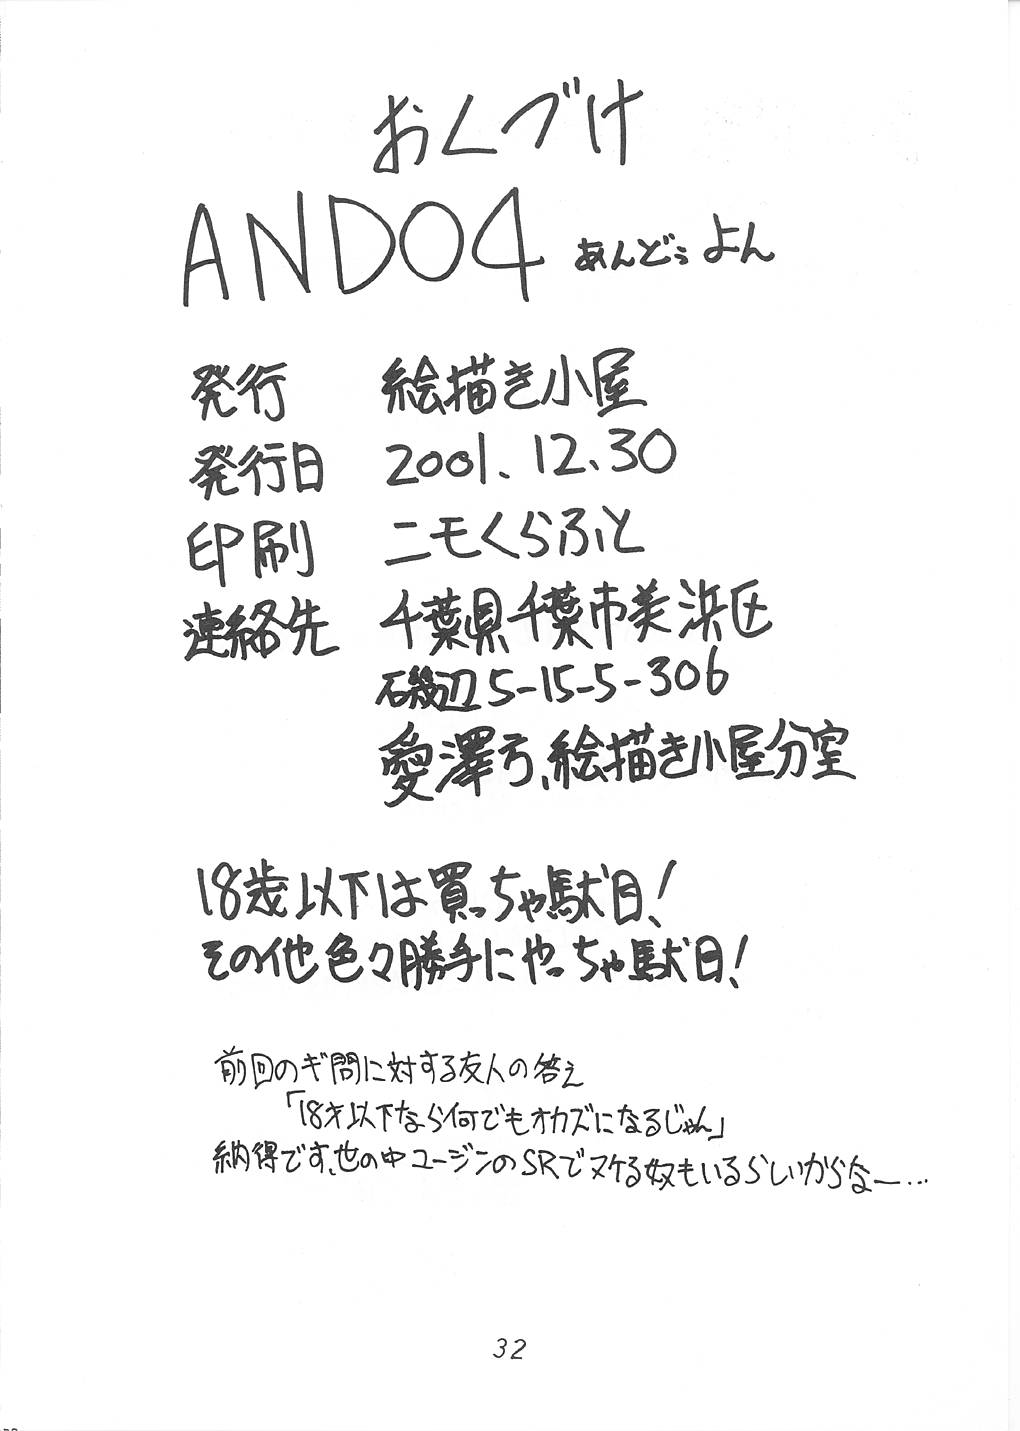 おくづけ
ANDO4 あんどぅよん
発行 絵描き小屋
発行日 2001.12.30
印刷 ニモくらふと
連絡先 千葉県千葉市美浜区
磯辺5-15-5-306
愛澤弓、絵描き小屋分室
18歳以下は買っちゃ駄目!
その他色々勝手にやっちゃ駄目!
前回のギ問に対する友人の答え
「18才以下なら何でもオカズになるじゃん」
納得です、世の中ユージンのSRでヌケる奴もいるらしいからなー…
32